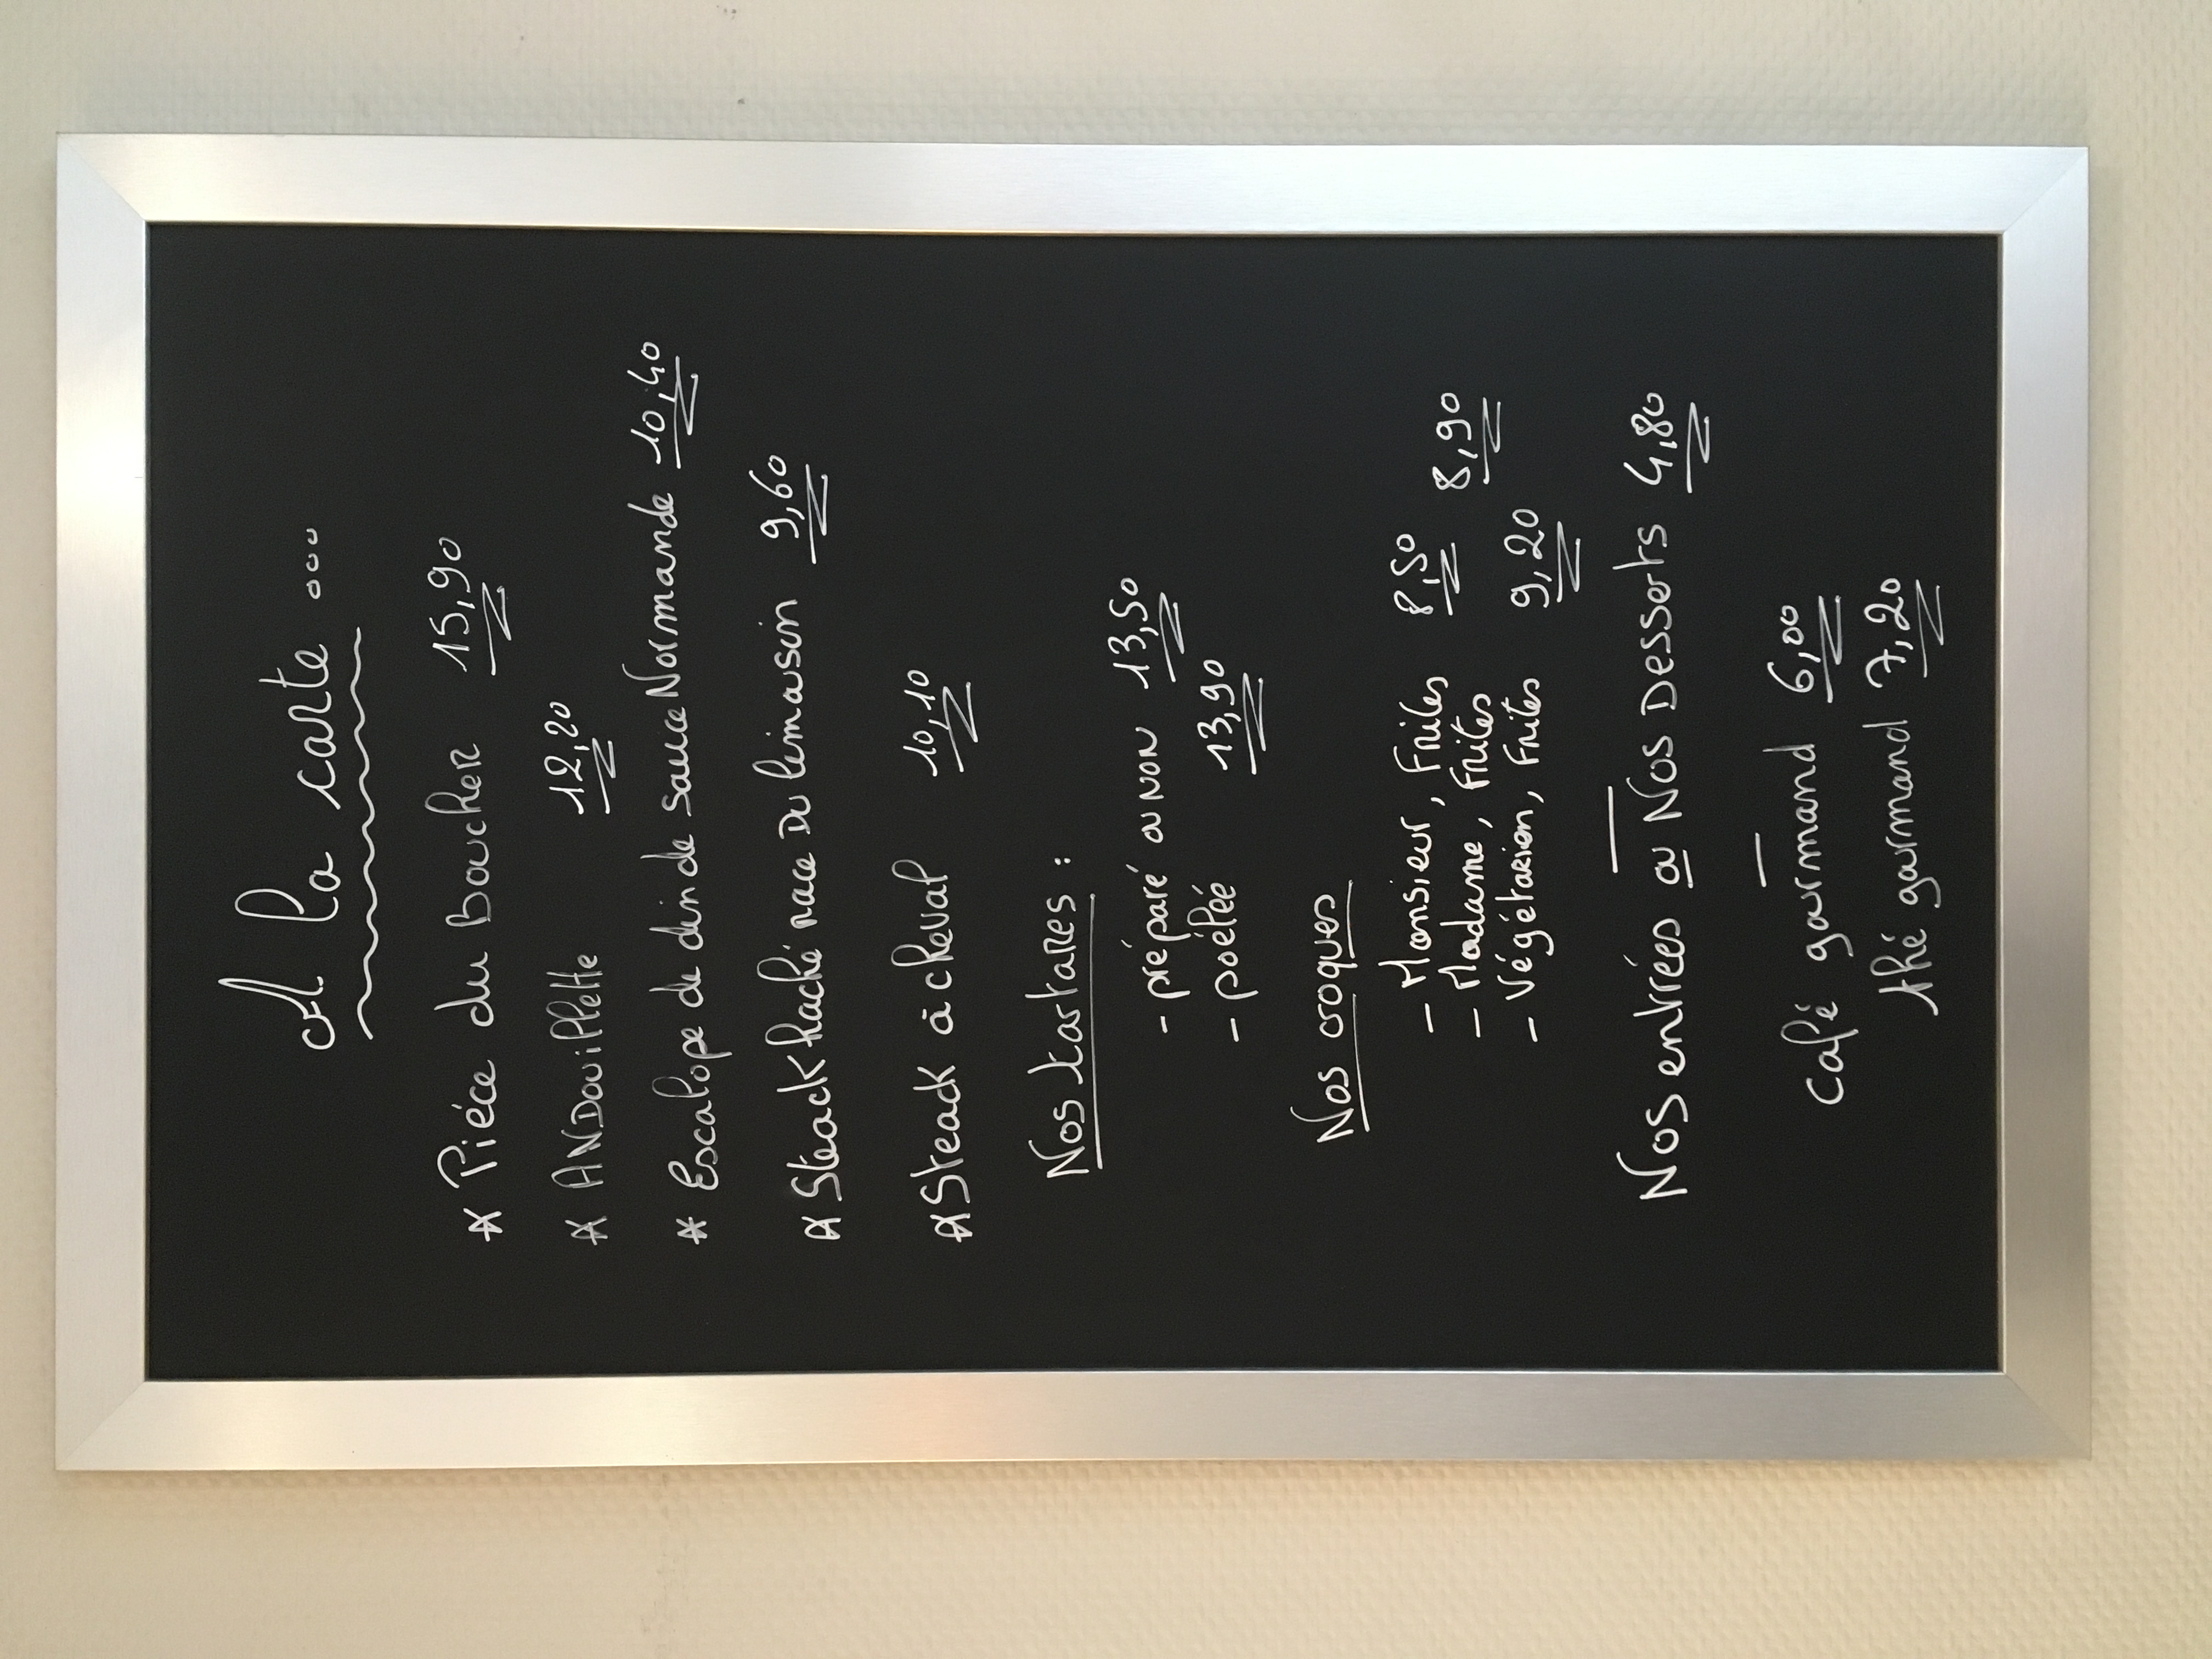 A la carte ...
* Pièce du Boucher 15,90
* ANDouillette 12,20
* Escalope de dinde sauce Normande 10,40
* Steack haché race Du limousin 9,60
* Steack à cheval 10,10
Nos tartares :
- préparé ou NON 13,50
- poélée 13,90
Nos croques
- Monsieur, Frites 8,50
- Madame, Frites 8,90
- Végétarien, Frites 9,20
Nos entrées ou Nos Desserts 4,80
Café gourmand 6,00
thé gourmand 7,20